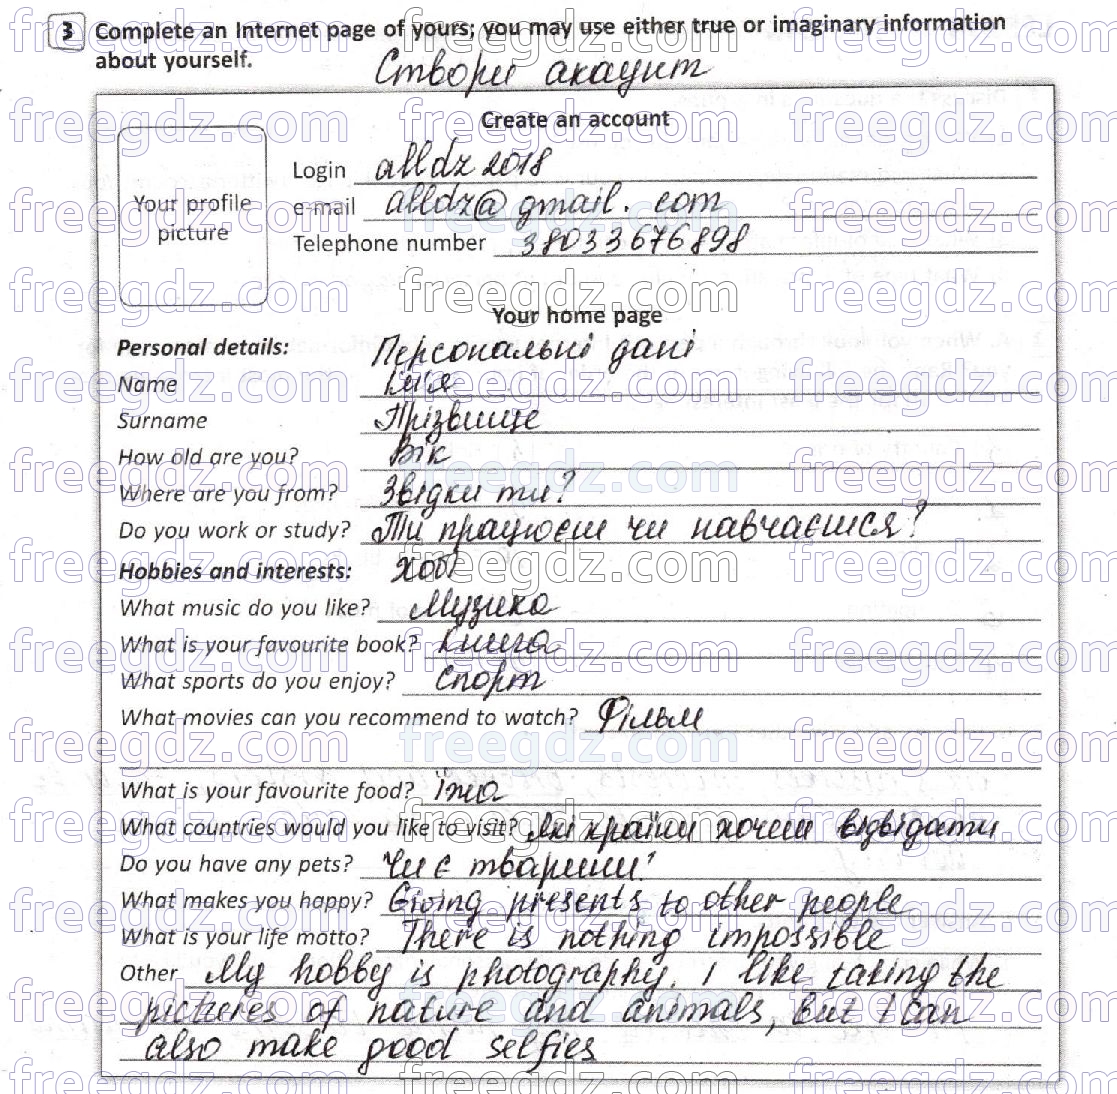 3 Complete an Internet page of yours; you may use either true or imaginary information
about yourself.
Створи акаунт
Create an account
Your profile
picture
Login alldz2018
e-mail alldz@gmail.com
Telephone number 38033676898
Your home page
Personal details: Персональні дані
Name Ім'я
Surname Прізвище
How old are you? Вік
Where are you from? Звідки ти?
Do you work or study? Ти працюєш чи навчаєшся?
Hobbies and interests: Хобі
What music do you like? Музика
What is your favourite book? Книга
What sports do you enjoy? Спорт
What movies can you recommend to watch? Фільм
What is your favourite food? Їжа
What countries would you like to visit? Які країни хочеш відвідати
Do you have any pets? Чи є тварини?
What makes you happy? Giving presents to other people
What is your life motto? There is nothing impossible
Other My hobby is photography. I like taking the
pictures of nature and animals, but I can
also make good selfies
freegdz.com